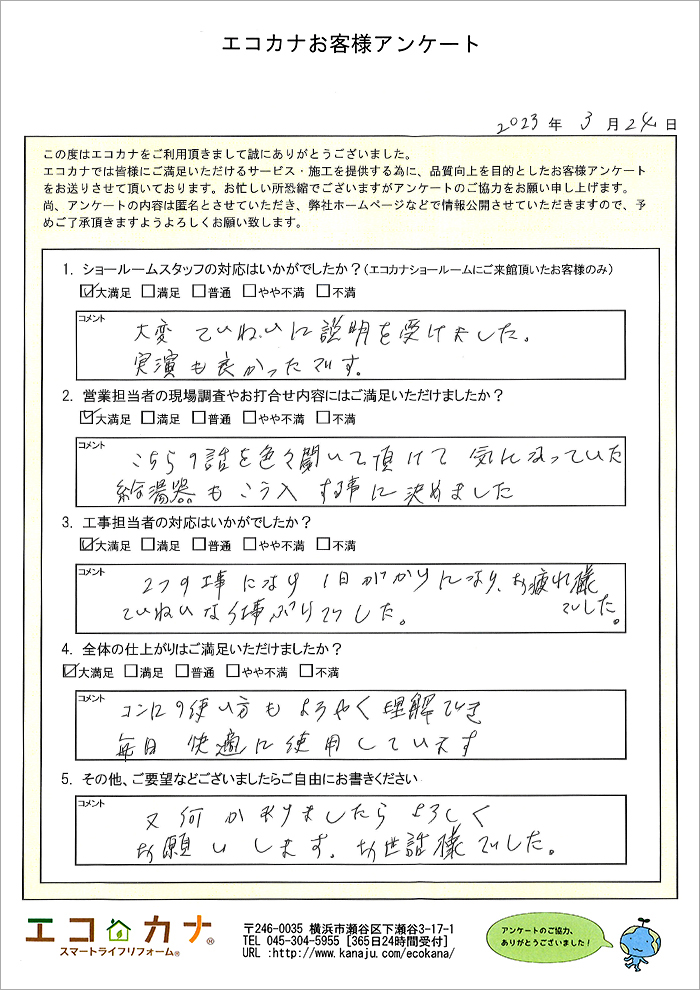 エコカナお客様アンケート
2023 年 3 月 24 日
この度はエコカナをご利用頂きまして誠にありがとうございました。
エコカナでは皆様にご満足いただけるサービス・施工を提供する為に、品質向上を目的としたお客様アンケート
をお送りさせて頂いております。お忙しい所恐縮でございますがアンケートのご協力をお願い申し上げます。
尚、アンケートの内容は匿名とさせていただき、弊社ホームページなどで情報公開させていただきますので、予
めご了承頂きますようよろしくお願い致します。
1. ショールームスタッフの対応はいかがでしたか？(エコカナショールームにご来館頂いたお客様のみ)
☑大満足 □満足 □普通 □やや不満 □不満
コメント
大変 ていねいに説明を受けました。
実演も良かったです。
2. 営業担当者の現場調査やお打合せ内容にはご満足いただけましたか？
☑大満足 □満足 □普通 □やや不満 □不満
コメント
こちらの話を色々聞いて頂けて 気になっていた
給湯器も こう入 する事に決めました
3. 工事担当者の対応はいかがでしたか？
☑大満足 □満足 □普通 □やや不満 □不満
コメント
2つの工事になり 1日がかりになり、お疲れ様
でした。
ていねいな仕事ぶりでした。
4. 全体の仕上がりはご満足いただけましたか？
☑大満足 □満足 □普通 □やや不満 □不満
コメント
コンロの使い方も ようやく 理解でき
毎日 快適に使用しています
5. その他、ご要望などございましたらご自由にお書きください
コメント
又何かありましたら よろしく
お願いします。お世話様でした。
エコカナ®
スマートライフリフォーム®
〒246-0035 横浜市瀬谷区下瀬谷3-17-1
TEL 045-304-5955 [365日24時間受付]
URL :http://www.kanaju.com/ecokana/
アンケートのご協力、
ありがとうございました！